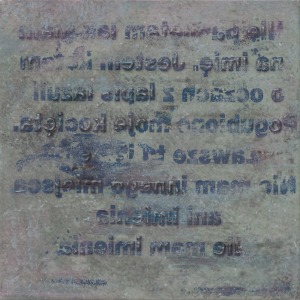 Nie pamiętam jak mam
na imię. Jestem kotem
o oczach z lapis lazuli
Pogubiono moje kocięta.
Zawsze
Nie mam innego miejsca
ani imienia
Nie mam imienia.